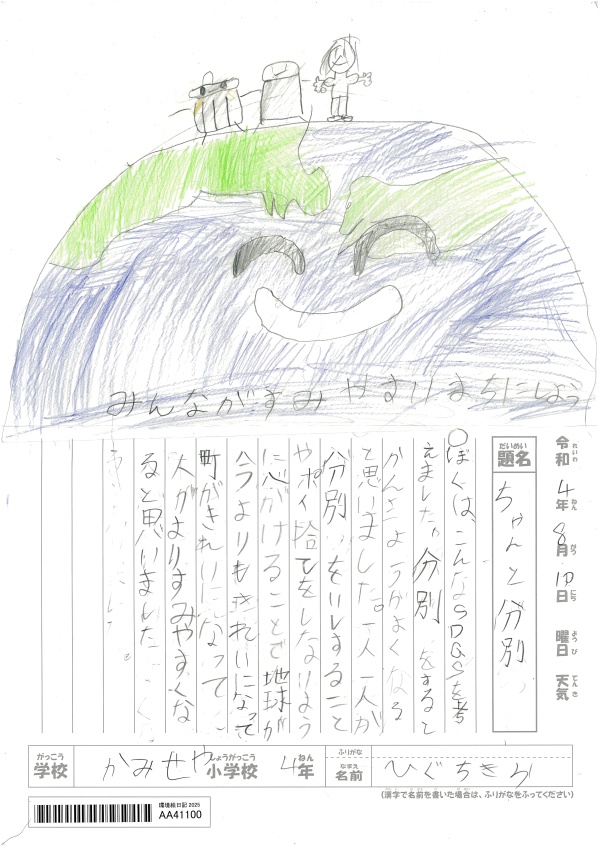 みんながすみやすいまちにしよう
令和4年8月10日 曜日 天気
れいわ ねん がつ にち ようび てんき
だいめい
題名
ちゃんと分別
ぼくは、こんなSDGSを考
えました。分別をすると
かんきょうがよくなる
と思いました。一人一人が
分別をいしきすること
やポイ捨てをしなりよう
に心がけることで地球が
今よりもきれいになって
町がきれいになって
人がよりすみやすくな
ると思いました
がっこう
学校
かみせや
しょうがっこう
小学校
4年
ねん
ふりがな
なまえ
名前
ひぐち
(漢字で名前を書いた場合は、ふりがなをふってください)
環境絵日記2025
AA41100